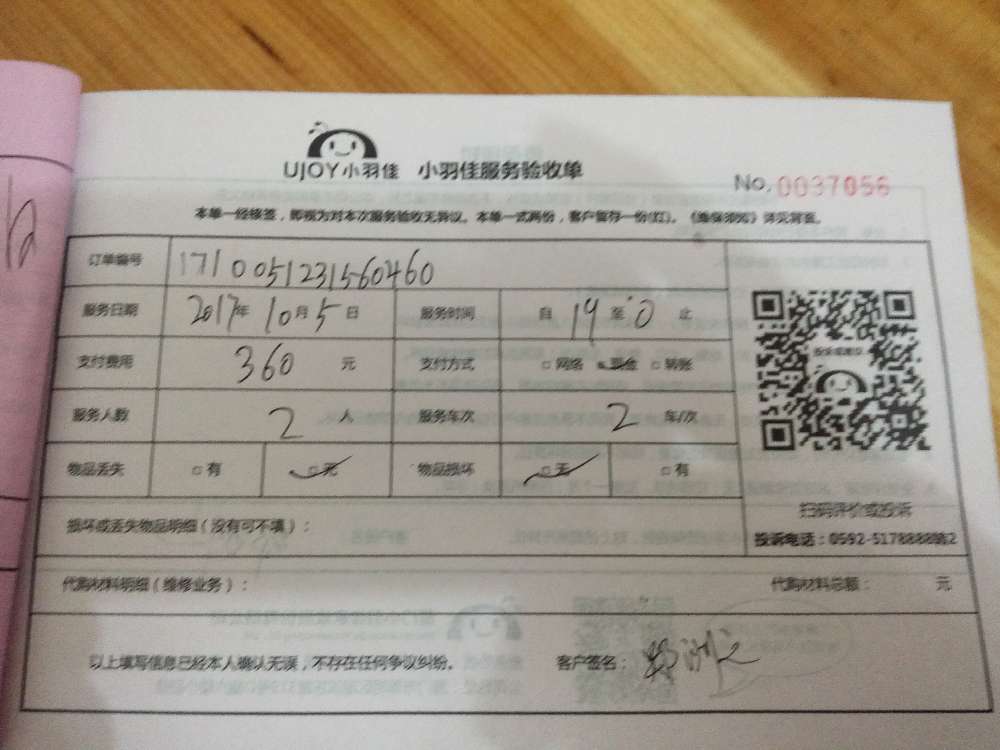 UJOY小羽佳 小羽佳服务验收单
No. 0037056
本单一经接签，即视为对本次服务验收无异议。本单一式两份，客户留存一份(红)。《维保须知》详见背面。
订单编号 1710051231560460
服务日期 2017年10月5日 服务时间 自19至 0止
支付费用 360 元 支付方式 □网络 现金 □转账
服务人数 2 人 服务车次 2 车/次
物品丢失 □有 □无 物品损坏 □无 □有
投诉或建议
扫码评价或投诉
投诉电话：0592-5178888转2
损坏或丢失物品明细（没有可不填）：
代购材料明细（维修业务）： 代购材料总额： 元
以上填写信息已经本人确认无误，不存在任何争议纠纷。 客户签名：